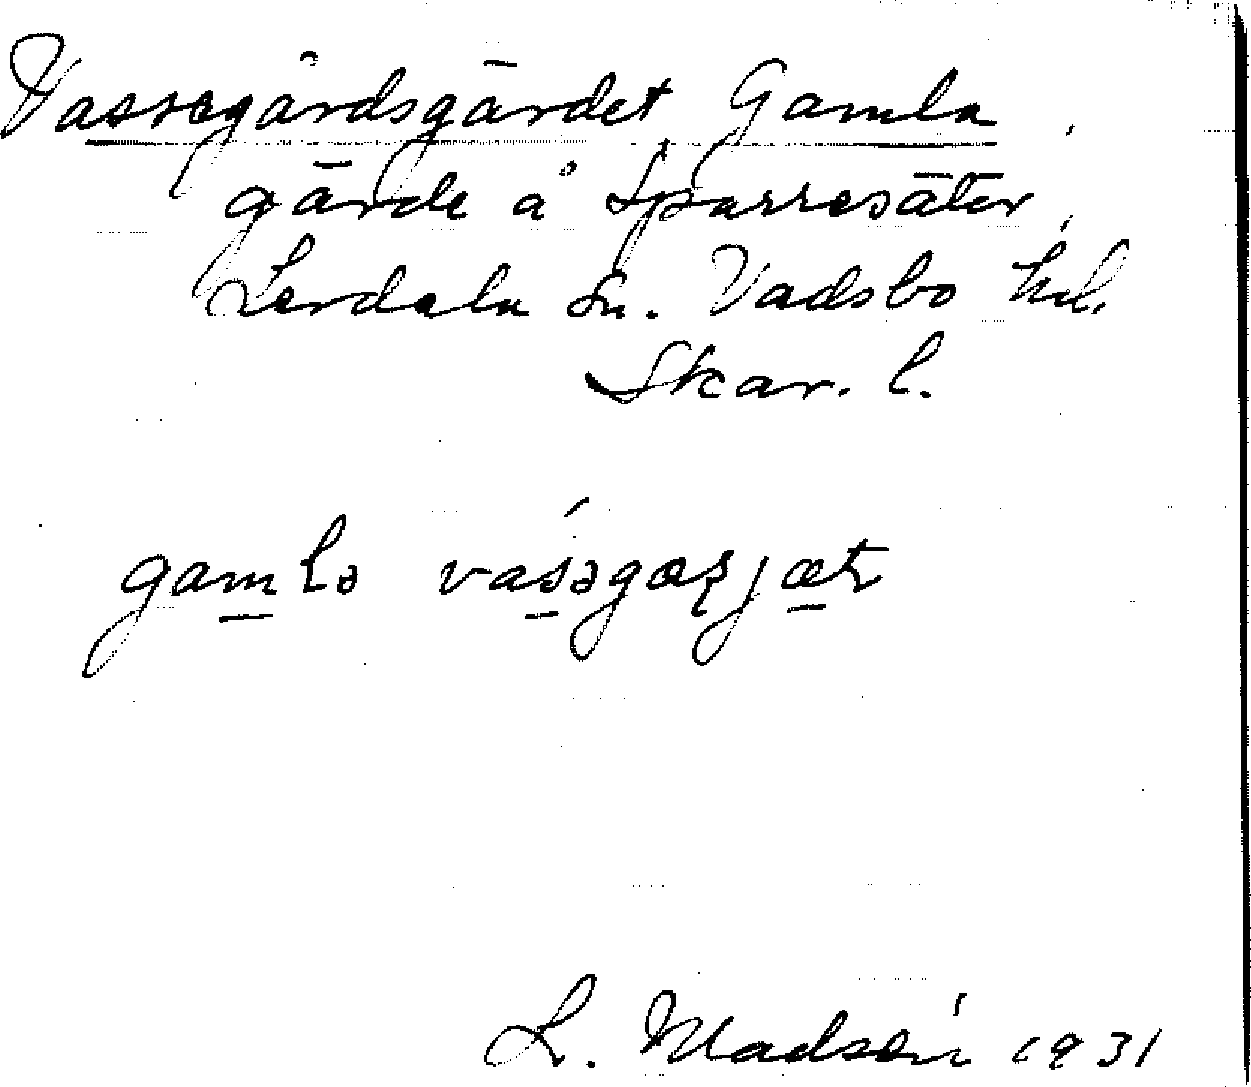 Vassegårdsgärdet, Gamla,
gärde å Sparresäter,
Lerdala sn. Vadsbo hd.
Skar. l.
gamɫə vásəgæɽjæt
L. Madsén 1931